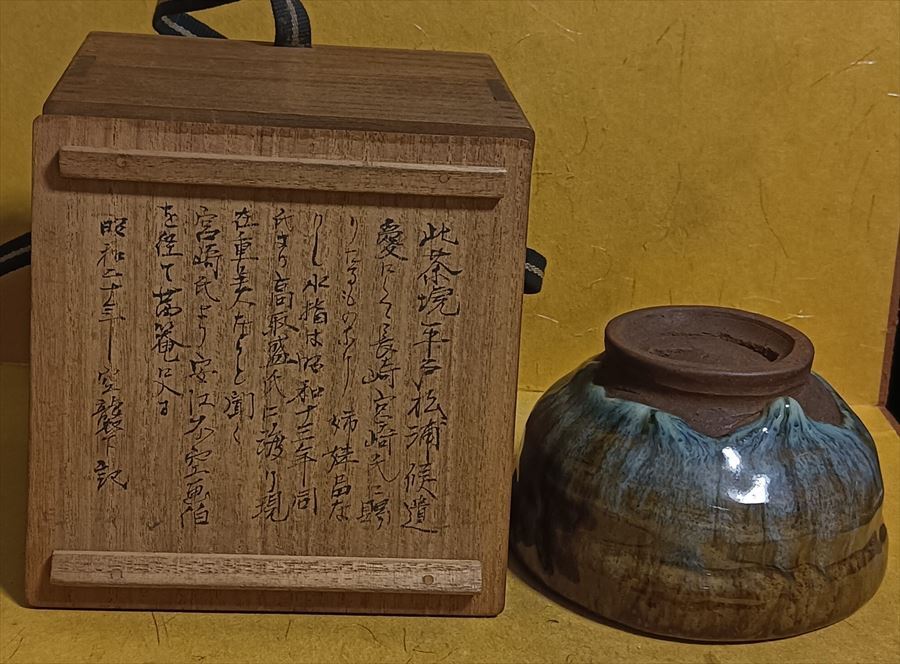 此茶埦平戸松浦候遺
愛にして長崎宮崎氏に贈
りたるものなり 姉妹品な
りし水指は昭和十三年同
氏より高取盛氏に渡り現
在重美なりと聞く
宮崎氏より安江不空画伯
を経て
昭和二十年 空襲下記